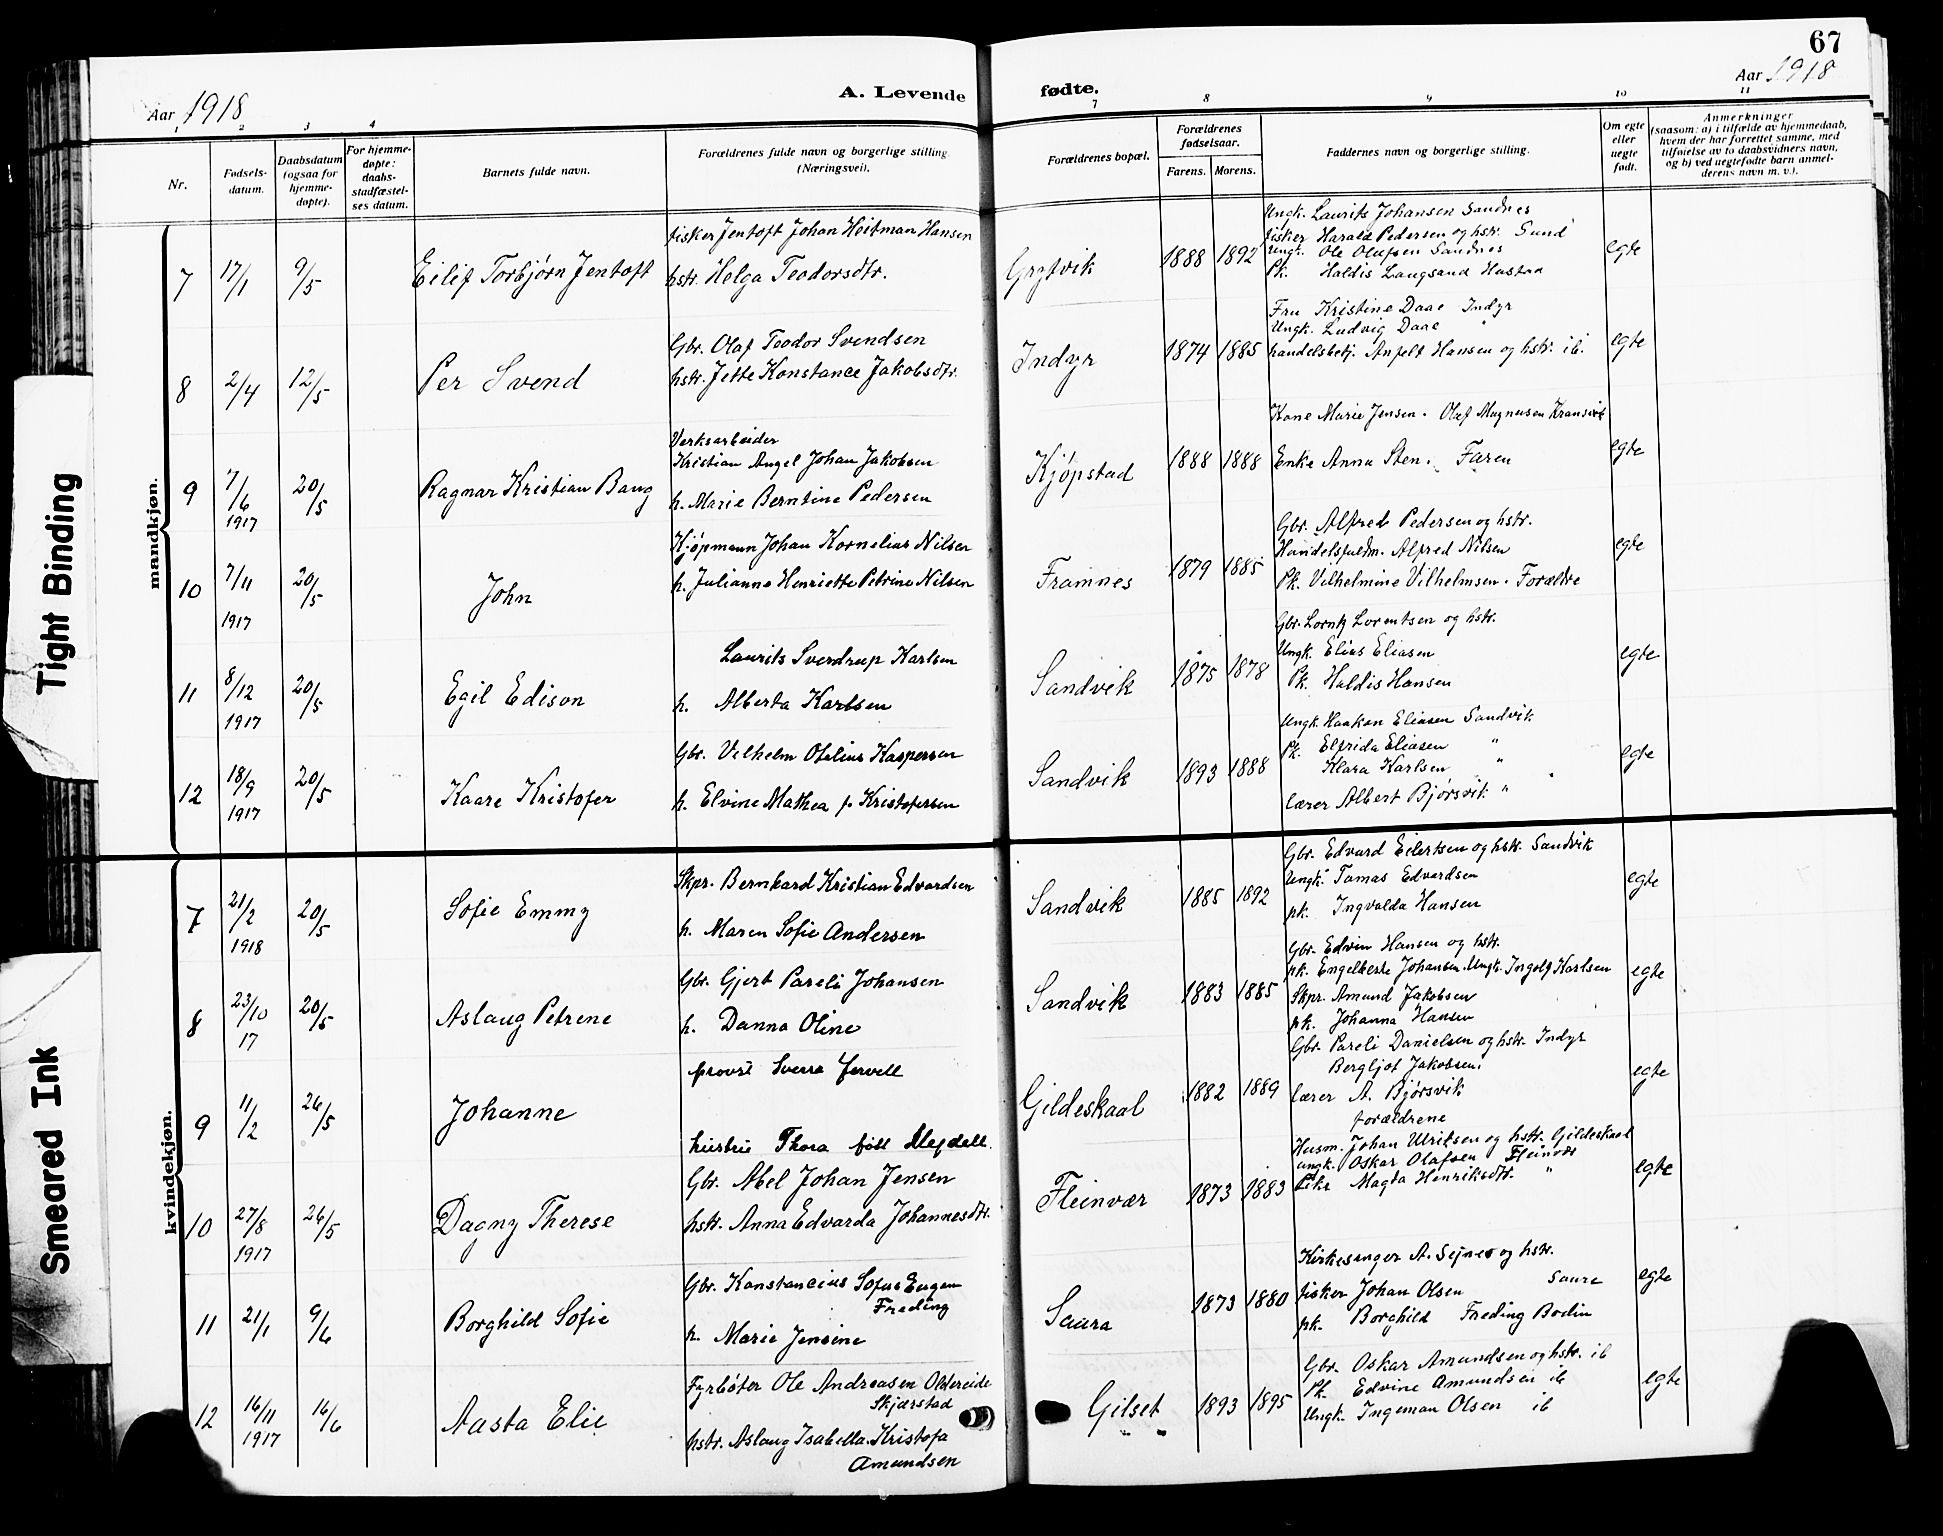 67
Aar 1918
A. Levende
fødte.
Aar 1918
1 2 3 4 7 8 9 10 11
Nr.
Fødsels-
datum.
Daabsdatum
(ogsaa for
hjemme-
døpte).
For hjemme-
døpte:
daabs-
stadfæstel-
ses datum.
Barnets fulde navn.
Forældrenes fulde navn og borgerlige stilling.
(Næringsvei).
Forældrenes bopæl.
Forældrenes
fødselsaar.
Farens. Morens.
Faddernes navn og borgerlige stilling.
Om egte
eller
uegte
født.
Anmerkninger
(saasom: a) i tilfælde av hjemmedaab,
hvem der har forrettet samme, med
tilføielse av to daabsvidners navn,
og b) ved uegtefødte barn anmel-
derens navn m. v.).
Tight Binding
Smeared Ink
mandkjøn.
7 17/1 9/5 Eilif Torbjørn Jentoft
fisker Jentoft Johan Heitman Hansen
hstr. Helga Teodorsdtr.
1888 1892
Ungk. Laurits Johansen Sandnes
fisker Harald Pedersen og hstr. Sund
Ungk. Ole Olufsen Sandnes
Pk. Haldis Langsand Hustad
egte
8 2/4 12/5 Per Svend
Gbr. Olaf Teodor Svendsen
hstr. Jette Konstance Jakobsdtr.
Indyr 1874 1885
Fru Kristine Daae Indyr
Ungk. Ludvig Daae "
handelsbetj. Hansen og hstr. ib.
egte
9 7/6 1917 20/5 Ragnar Kristian Bang
Verksarbeider
Kristian Angel Johan Jakobsen
h. Marie Berntine Pedersen
Kjøpstad 1888 1888
Kone Marie Jensen. Olaf Magnusen
Enke Anna Sten. Faren
egte
10 7/11 1917 20/5 John
Kjøpmann Johan Kornelius Nilsen
h. Julianna Henriette Petrine Nilsen
Framnes 1879 1885
Gbr. Alfred Pedersen og hstr.
Handelsfuldm. Alfred Nilsen
Pk. Vilhelmine Vilhelmsen. Forældre
egte
11 8/12 1917 20/5 Egil Edison
Laurits Sverdrup Karlsen
h. Alberta Karlsen
Sandvik 1875 1878
Gbr. Lorntz Lorentsen og hstr.
Ungk. Elias Eliasen
Pk. Haldis Hansen
egte
12 18/9 1917 20/5 Kaare Kristofer
Gbr. Vilhelm Otelius Kaspersen
h. Elvine Mathea f. Kristofersen
Sandvik 1893 1888
Ungk. Haakon Eliasen Sandvik
Pk. Elfrida Eliasen "
Klara Karlsen "
lærer Albert Bjørsvik "
egte
kvindekjøn.
7 21/2 1918 20/5 Sofie Emmy
Skpr. Bernhard Kristian Edvardsen
h. Maren Sofie Andersen
Sandvik 1885 1892
Gbr. Edvard Eilertsen og hstr. Sandvik
Ungk. Tomas Edvardsen
pk. Ingvalda Hansen
egte
8 23/10 17 20/5 Aslaug Petrene
Gbr. Gjert Pareli Johansen
h. Danna Oline
Sandvik 1883 1885
Gbr. Edvin Hansen og hstr.
pk. Engelberte Johansen. Ungk. Ingolf Karlsen
Skpr. Amund Jakobsen
pk. Johanna Hansen
egte
9 11/2 26/5 Johanne
provst Sverre
hustru Thora født
Gildeskaal 1882 1889
Gbr. Pareli Danielsen og hstr. Indyr
Bergljot Jakobsen.
lærer A. Bjørsvik
forældrene
egte
10 27/8 1917 26/5 Dagny Therese
Gbr. Abel Johan Jensen
hstr. Anna Edvarda Johannesdtr.
Fleinvær 1873 1883
Husm. Johan Ulriksen og hstr. Gildeskaal
ungk. Oskar Olafsen Fleinvær
Pike Magda Henriksdtr. "
egte
11 21/1 9/6 Borghild Sofie
Gbr. Konstancius Sofus Eugen
Freding
h. Marie Jensine
Saura 1873 1880
Kirkesanger A. Sejnes og hstr.
Saura
fisker Johan Olsen
pk. Borghild Freding Bodin
egte
12 16/11 1917 16/6 Aasta Elie
Fyrbøter Ole Andreasen Oldereide
Skjærstad
hstr. Aslaug Isabella Kristofa
Amundsen
Gilset 1893 1895
Gbr. Oskar Amundsen og hstr. ib
Pk. Edvine Amundsen ib
Ungk. Ingeman Olsen ib
egte